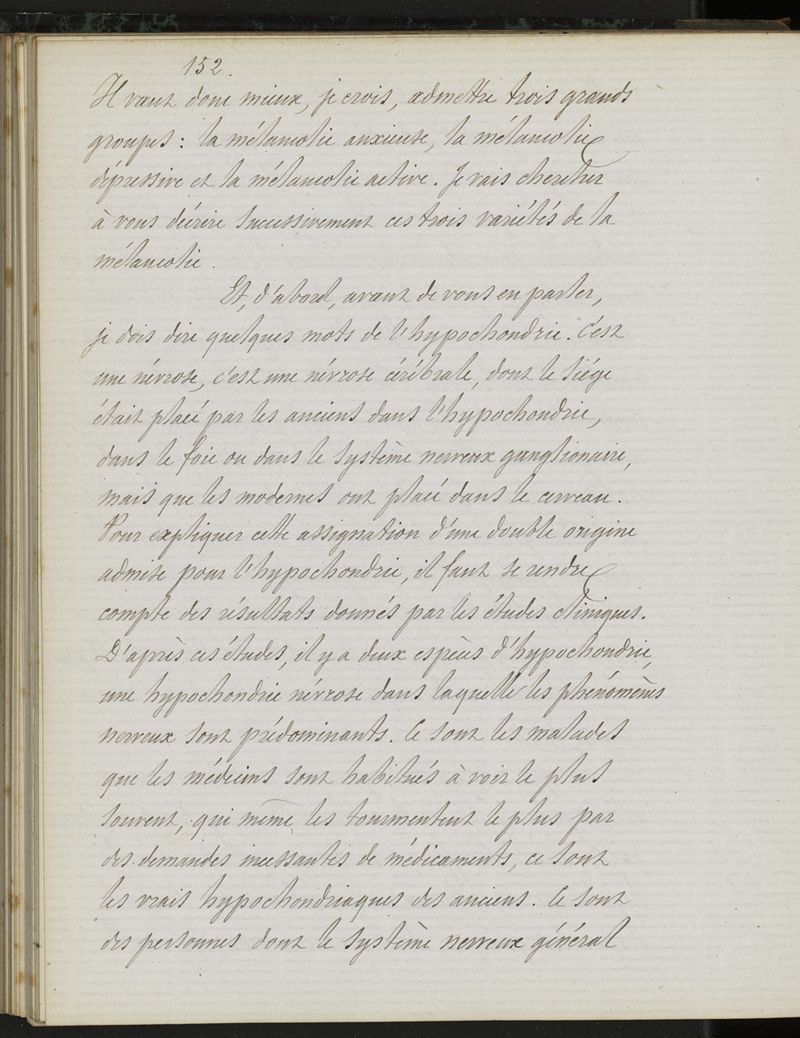 152.
Il vaut donc mieux, je crois, admettre trois grands
groupes : la mélancolie anxieuse, la mélancolie
dépressive et la mélancolie active. Je vais chercher
à vous décrire successivement ces trois variétés de la
mélancolie.
Et, d'abord, avant de vous en parler,
je dois dire quelques mots de l'hypochondrie. C'est
une névrose, c'est une névrose cérébrale, dont le siége
était placé par les anciens dans l'hypochondrie,
dans le foie ou dans le système nerveux ganglionaire,
mais que les modernes ont placé dans le cerveau.
Pour expliquer cette assignation d'une double origine
admise pour l'hypochondrie, il faut se rendre
compte des résultats donnés par les études cliniques.
D'après ces études, il y a deux espèces d'hypochondrie,
une hypochondrie névrose dans laquelle les phénomènes
nerveux sont prédominants. Ce sont les malades
que les médecins sont habitués à voir le plus
souvent, qui même les tourmentent le plus par
des demandes incessantes de médicaments, ce sont
les vrais hypochondriaques des anciens. Ce sont
des personnes dont le système nerveux général